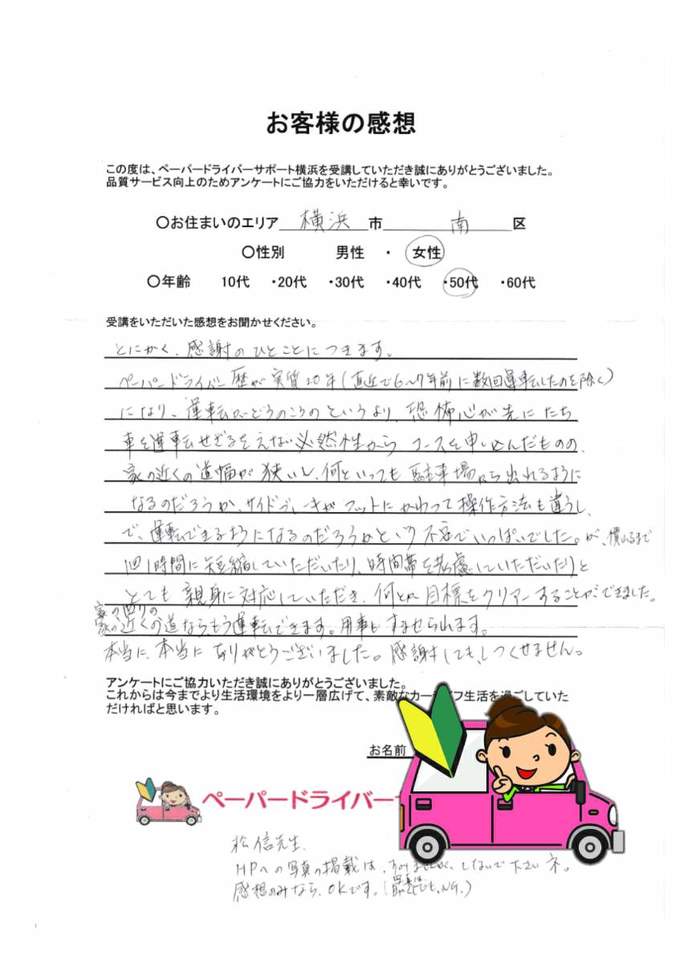 お客様の感想
この度は、ペーパードライバーサポート横浜を受講していただき誠にありがとうございました。
品質サービス向上のためアンケートにご協力をいただけると幸いです。
〇お住まいのエリア 横浜 市 南 区
〇性別 男性 ・ 女性
〇年齢 10代 ・20代 ・30代 ・40代 ・50代 ・60代
受講をいただいた感想をお聞かせください。
とにかく、感謝のひとことにつきます。
ペーパードライバー歴が実質20年(直近で6〜7年前に数回運転したのを除く)
になり、運転がどうのこうのというより、恐怖心が先にたち
車を運転せざるをえない必然性からコースを申し込んだものの、
家の近くの道幅が狭いし、何といっても駐車場から出れるように
なるのだろうか、サイドブレーキがフットにかわって操作方法も違うし、
で、運転できるようになるのだろうかという不安でいっぱいでした。が、慣れるまで
1回1時間に短縮していただいたり、時間帯を考慮していただいたりと
とても親身に対応していただき、何とか目標をクリアーすることができました。
家の回りの
近くの道ならもう運転できます。用事もすませられます。
本当に、本当にありがとうございました。感謝してもしつくせません。
アンケートにご協力いただき誠にありがとうございました。
これからは今までより生活環境をより一層広げて、素敵なカー フ生活を過ごしていた
だければと思います。
お名前
ペーパードライバー
松信先生
HPへの写真の掲載は、すみませんが、しないで下さいネ。
感想のみなら、OKです。(写真は NG.)